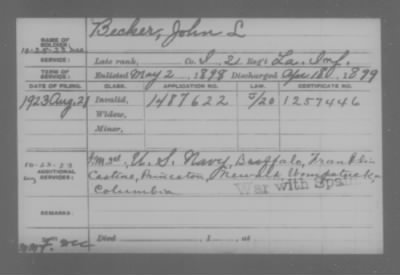 NAME OF SOLDIER: Becker, John L
10-25-23
SERVICE: Late rank, Co. I, 2 Reg't La. Inf.
TERM OF SERVICE: Enlisted May 2, 1898 Discharged Apr 18, 1899
DATE OF FILING. CLASS. APPLICATION NO. LAW. CERTIFICATE NO.
1923 Aug. 21 Invalid, 1487622 5/20 1257446
Widow,
Minor,
10-23-23
ADDITIONAL SERVICES: U. S. Navy, Buffalo, Franklin
Castine, Princeton, Newark, Wompatuck
Columbia
War with Spain
REMARKS:
Died , 1 , at